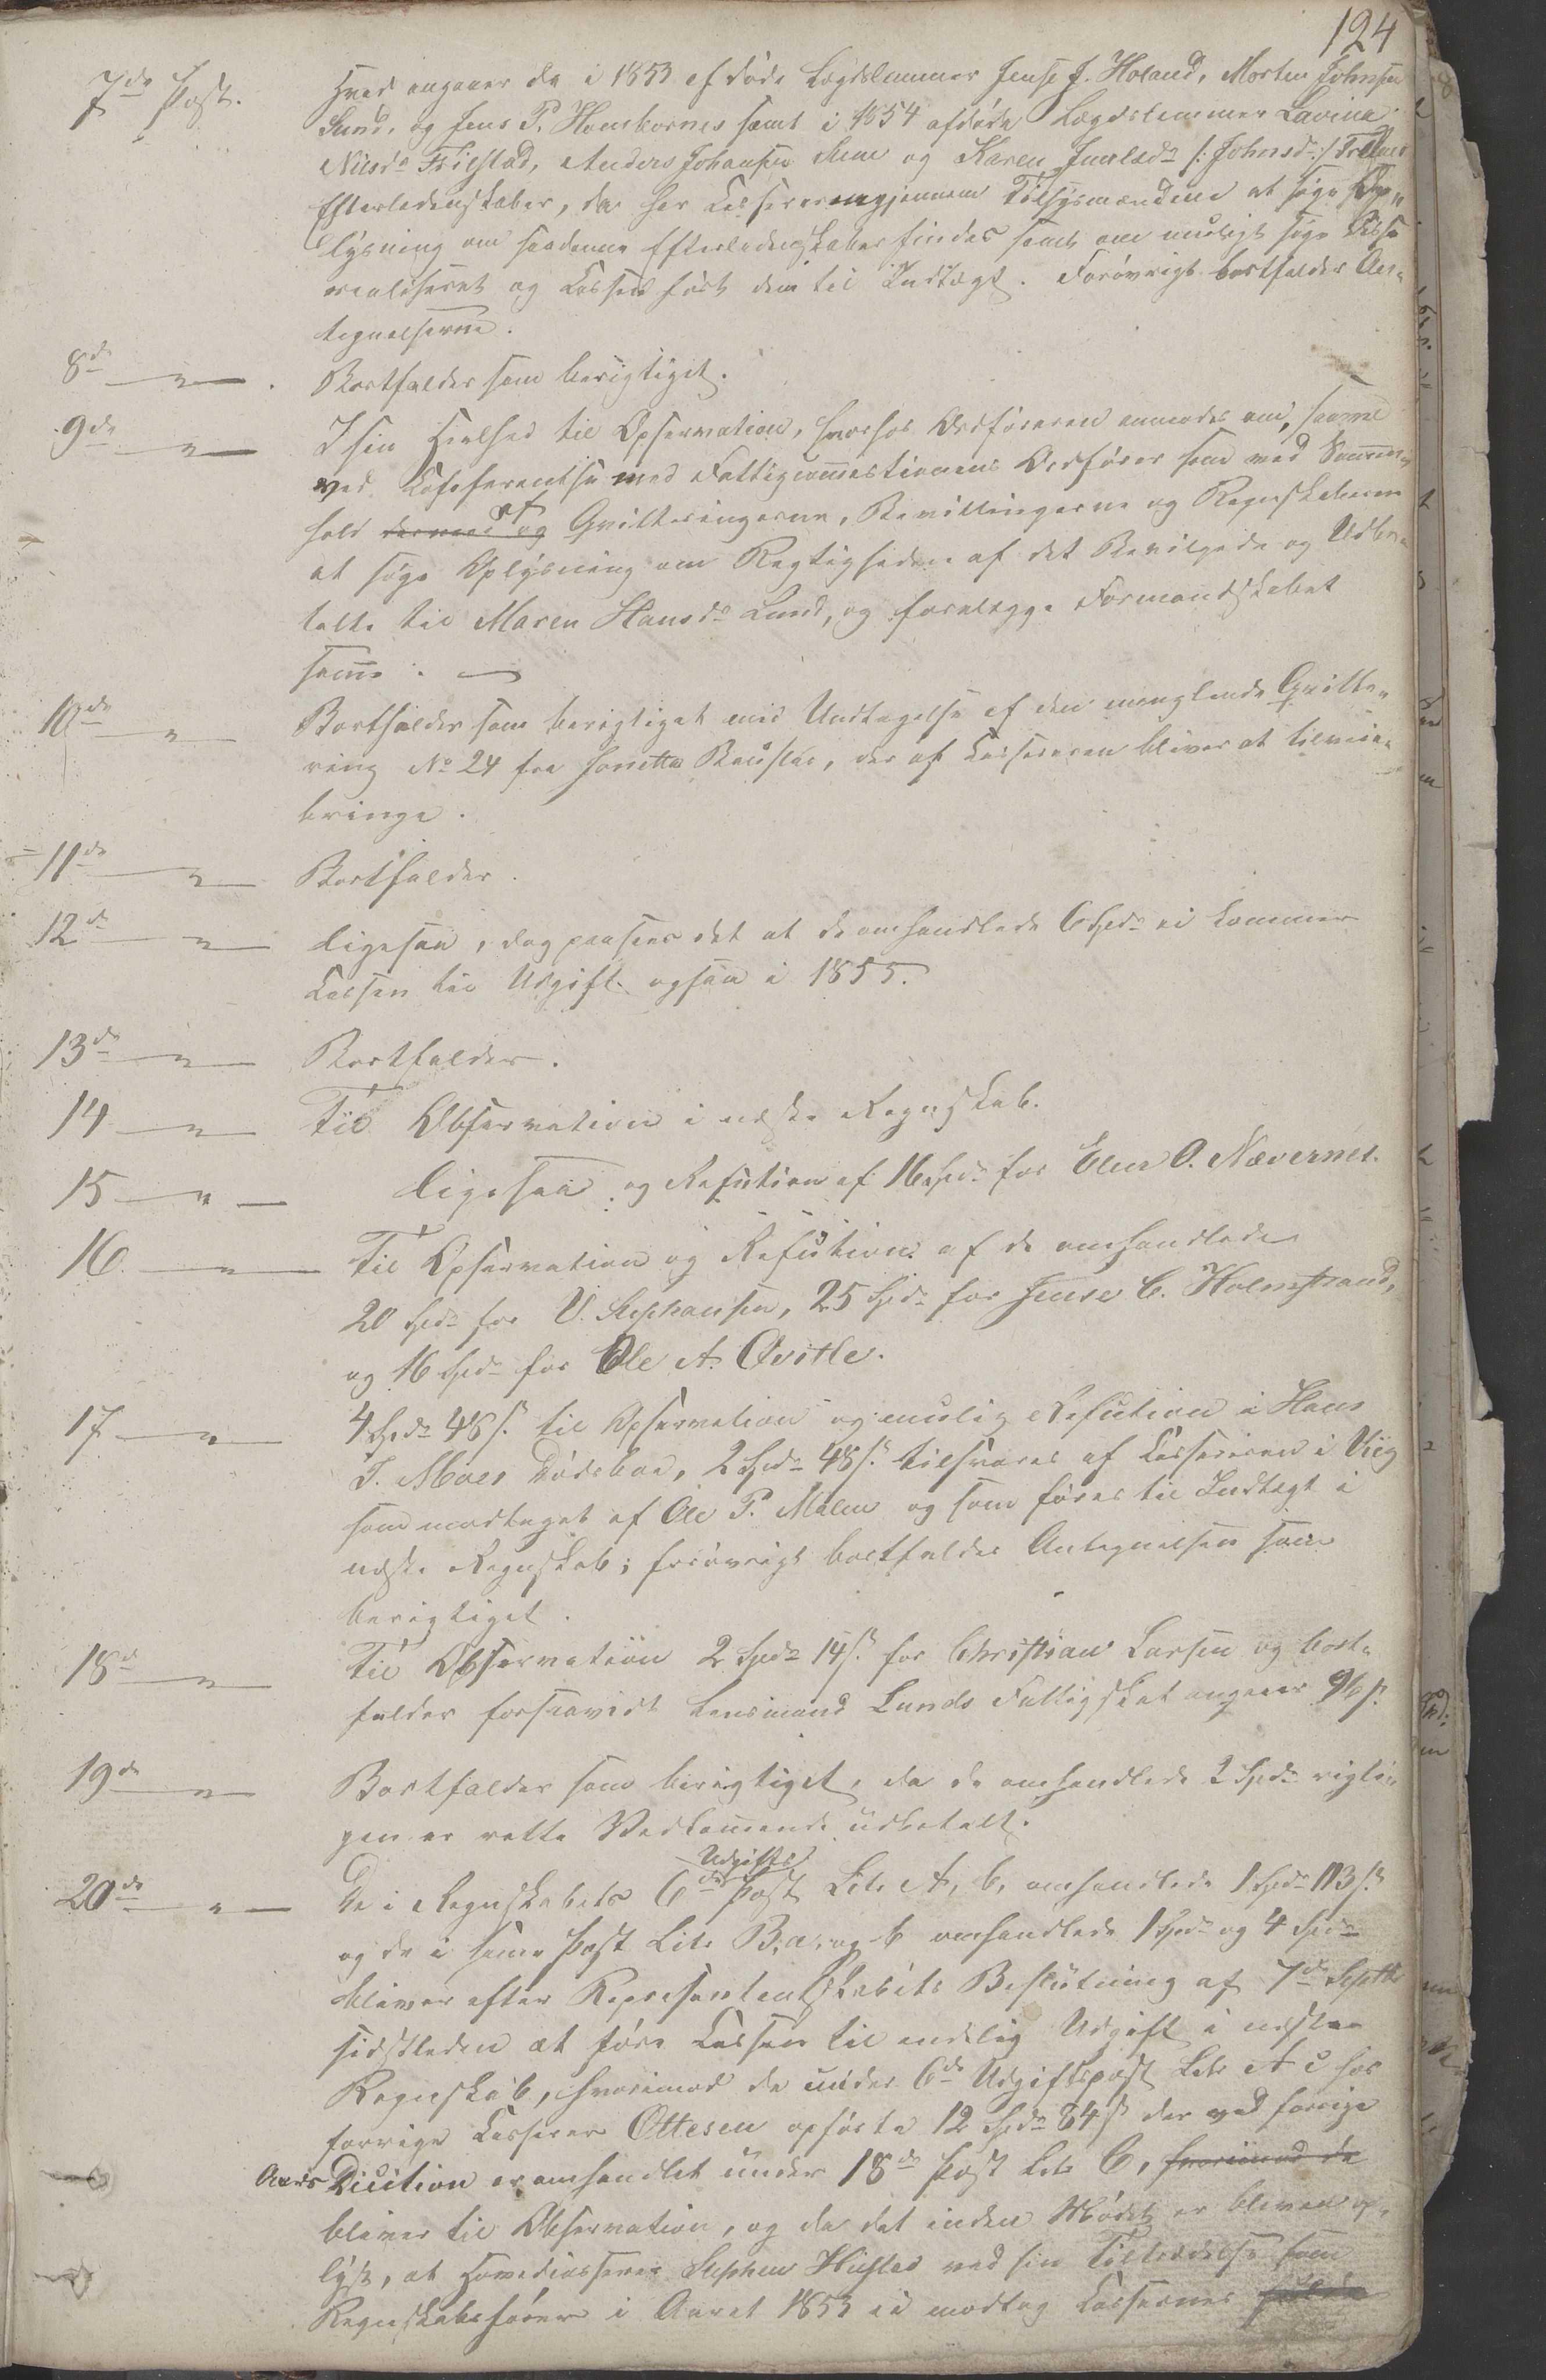 124
7de Post. Hvad angaaer de i 1853 afdøde Lægdslemmer Jense J. Holand, Morten Johnsen
Sund, og Jens P. Hombornes samt i 1854 afdøde Lægdslemmer Lavina
Nilsdr Frilstad, Anders Johansen Sem og Karen Jnrlsdr /: Johnsdr :/
Efterladenskaber, da har Cassereren gjennem Tilsynsmændene at søge Op-
lysning om saadanne Efterladenskaber findes samt om muligt søge disse
realiseret og Cassen ført dem til Indtægt. Forøvrigt bortfalder An-
tegnelserne.
8de — " — . Bortfalder som berigtiget.
9de — " — I sin Heelhed til Opservation, hvorhos Ordføreren anmodes om, saavel
ved Conferentse med Fattigcommissionens Ordfører som ved Sammen-
hold dermed og af Qvitteringerne, Bevillingerne og Regnskaberne
at søge Oplysning om Rigtigheden af det Bevilgede og Udbe-
talte til Maren Hansdr Lund, og forelægge Formandskabet
samme. —
10de — " — Bortfalder som berigtiget med Undtagelse af den manglende Qvitte-
ring No 24 fra Jonetta Bauslad, der af Cassereren bliver at tilveie-
bringe.
11de — " — Bortfalder.
12de — " — Ligesaa, dog paasees det at de omhandlede 6 Spdr ei kommer
Cassen til Udgift ogsaa i 1855.
13de — " — Bortfalder.
14 — " — Til Observation i næste Regnskab.
15 — " — Ligesaa og Refution af 16 Spdr for Elen O. Nævernes.
16 — " — Til Opservation og Refution af de omhandlede
20 Spdr for U. Stephansen, 25 Spdr for Jense C. Holmstrand,
og 16 Spdr for Ole A. Qvitle.
17 — " — 4 Spdr 48 s. til Opservation og mulig Refution i Hans
T. Moes Dødsboe, 2 Spdr 48 s. tilsvares af Cassereren i Viig
som modtaget af Ole P. Malm og som føres til Indtægt i
næste Regnskab; forøvrigt bortfalder Antegnelsen som
berigtiget.
18de — " — Til Observation 2 Spdr 14 s. for Christian Larsen og bort-
falder forsaavidt Lensmand Lunds Fattigskat angaaer 96 s.
19de — " — Bortfalder som berigtiget, da de omhandlede 2 Spdr rigti-
gen er rette Vedkommende udbetalt.
20de — " — De i Regnskabets 6de Udgifts Post Litr A, b, omhandlede 1 Spdr 113 s.
og de i samme Post Litr B, a, og b omhandlede 1 Spdr og 4 Spdr
bliver efter Representantskabets Beslutning af 7de Septbr
sidstleden at føre Cassen til endelig Udgift i næste
Regnskab, hvorimod de under 6de Udgiftspost Litr A c hos
forrige Casserer Ottesen opførte 12 Spdr 84 s der ved forrige
Aars Dicition er omhandlet under 18de Post Litr C, hvorimod de
bliver til Observation, og da det inden Mødet er bleven op-
lyst, at Hovedcasserer Stephen Hustad ved sin Tiltrædelse som
Regnskabsfører i Aaret 1853 ei modtog Cassernes